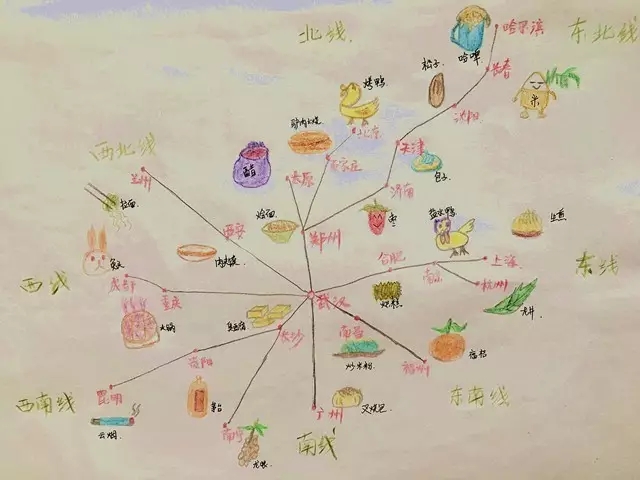 北线
东北线
哈尔滨
哈啤
长春
松子
米
沈阳
烤鸭
北京
驴肉火烧
石家庄
天津
包子
西北线
兰州
醋
太原
济南
枣
拉面
西安
烩面
郑州
盐水鸭
生煎
肉夹馍
合肥
南京
上海
东线
西线
兔头
成都
重庆
武汉
杭州
龙井
火锅
臭豆腐
长沙
南昌
炒米粉
福桔
福州
贵阳
昆明
茅台
广州
叉烧包
西南线
东南线
云烟
南宁
龙眼
南线